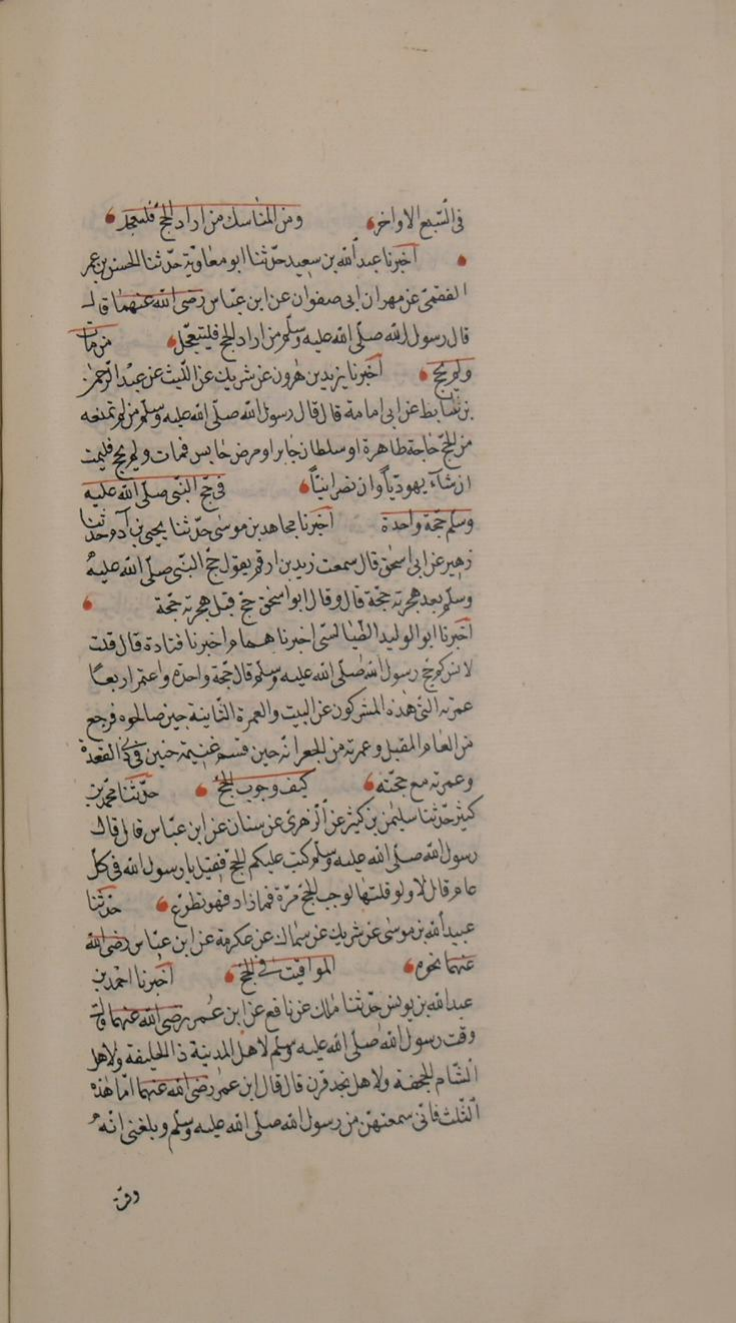 في السبع الاواخر ومن المناسك من اراد الحج فليتعجل
اخبرنا عبد الله بن سعيد حدثنا ابو معاوية حدثنا الحسن بن عمر
الفقمي عن مهران ابي صفوان عن ابن عباس رضي الله عنهما قال
قال رسول الله صلى الله عليه وسلم من اراد الحج فليتعجل من مات
ولم يحج اخبرنا يزيد بن هرون عن شريك عن الليث عن عبد الرحمن
بن سابط عن ابي امامة قال قال رسول الله صلى الله عليه وسلم من لم تمنعه
من الحج حاجة ظاهرة او سلطان جاير او مرض حابس فمات ولم يحج فليمت
ان شاء يهوديا وان نصرانيا في حج النبي صلى الله عليه
وسلم حجة واحدة اخبرنا مجاهد بن موسى حدثنا يحيى بن آدم حدثنا
زهير عن ابي اسحق قال سمعت زيد بن ارقم يقول حج النبي صلى الله عليه
وسلم بعد هجرته حجة قال وقال ابو اسحق حج قبل هجرته حجة
اخبرنا ابو الوليد الطيالسي اخبرنا همام اخبرنا قتادة قال قلت
لانس كم حج رسول الله صلى الله عليه وسلم قال حجة واحدة واعتمر اربعا
عمرته التي هذه المشركون عن البيت والعمرة الثانية حين صالحوه فرجع
من العام المقبل وعمرته من الجعرانه حين قسم غنيمة حنين في ذي القعدة
وعمرته مع حجته كيف وجوب الحج حدثنا محمد بن
كثير حدثنا سليمن بن كثير عن الزهري عن سنان عن ابن عباس قال قال
رسول الله صلى الله عليه وسلم كتب عليكم الحج فقيل يا رسول الله في كل
عام قال لا ولو قلتها لوجب الحج مرة فما زاد فهو تطوع حدثنا
عبيد الله بن موسى عن شريك عن سماك عن عكرمة عن ابن عباس رضي الله
عنهما نحوه المواقيت في الحج اخبرنا احمد بن
عبد الله بن يونس حدثنا مالك عن نافع عن ابن عمر رضي الله عنهما قال
وقت رسول الله صلى الله عليه وسلم لاهل المدينة ذا الحليفة ولاهل
الشام الجحفة ولاهل نجد قرن قال قال ابن عمر رضي الله عنهما اما هذه
الثلث فاني سمعتهن من رسول الله صلى الله عليه وسلم وبلغني انه
وقت